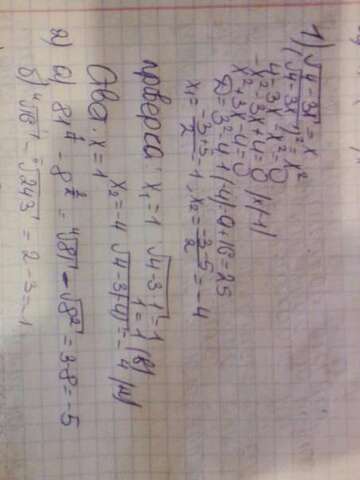 1) √4-3x = x
(√4-3x)² = x²
4-3x-x²=0
-x²-3x+4=0 |×(-1)
x²+3x-4=0
D=3²-4·1·(-4)=9+16=25
x₁= (-3+5)/2 = 1, x₂= (-3-5)/2 = -4
проверка: x₁=1 √4-3·1=1
1=1 (в)
x₂=-4 √4-3(-4)=-4 (н)
Ответ: x=1
2) а) 81^¼ - 8^2/2 = ⁴√81 - √8² = 3-8=-5
б) ⁴√16 - ⁵√243 = 2-3=-1